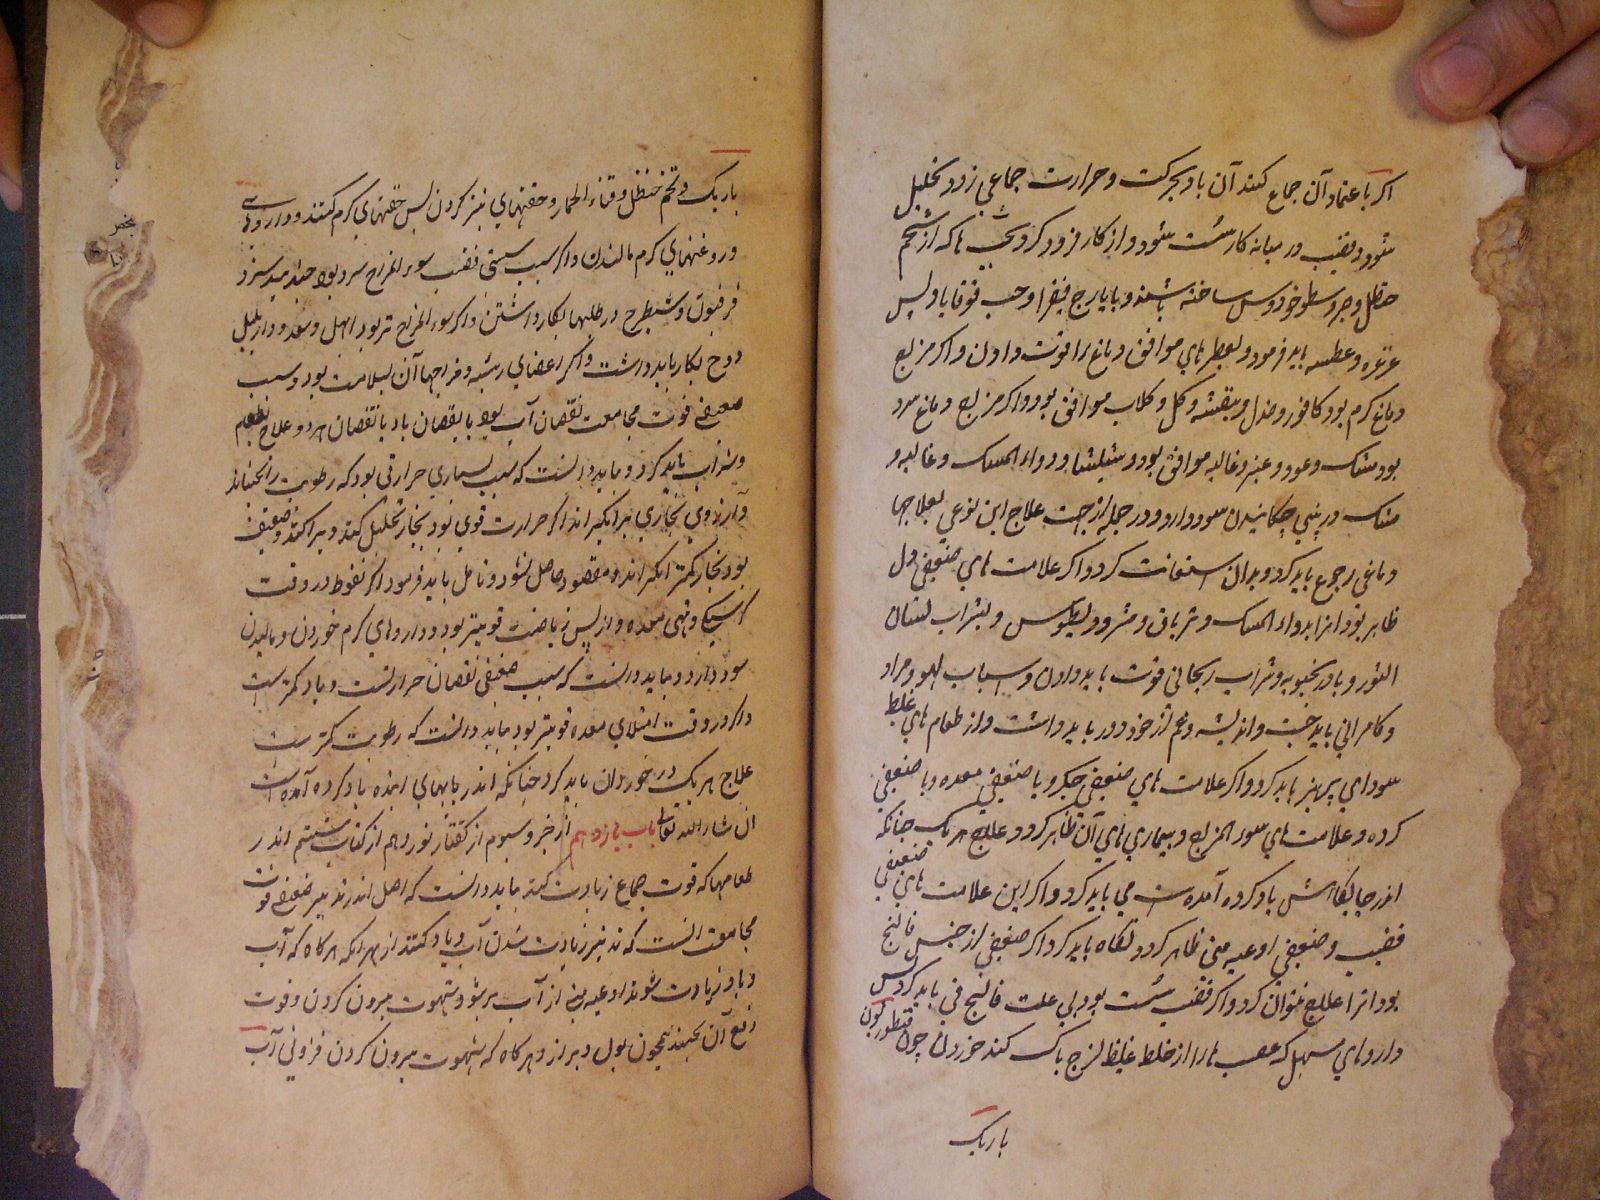 اکر باعتماد آن جماع کنند آن باد بحرکت و حرارت جماعی زود تحلیل
شود و قضیب در میانه کار سست شود و از کار فرود کرد و حب ها که از شحم
حنظل و صبر و اسطوخودوس ساخته باشند و با یارج فیقرا و حب قوقایا و پس
غرغره و عطسه باید فرمود و بعطرهای موافق دماغ را قوت دادن و اکر مزاج
دماغ کرم بود کافور و صندل و بنفشه و کل و کلاب موافق بود و اکر مزاج دماغ سرد
بود مشک و عود و عنبر و غالیه موافق بود و شلیثا و دواء المسک و غالیه و
مشک در بینی چکانیدن سود دارد و در جمله از جهت علاج این نوع بعلاجها
دماغی رجوع باید کرد و بدان استعانت کرد و اکر علامت های ضعیفی دل
ظاهر بود انرا بدواء المسک و تریاق و مثرودیطوس و بشراب لسان
الثور و بادرنجبویه و شراب ریحانی قوت باید دادن و اسباب لهو و مراد
و کامرانی باید جست و اندیشه و غم از خود دور باید داشت و از طعام های غلیظ
سودای پرهیز باید کرد و اکر علامت های ضعیفی جکر و یا ضعیفی معده و یا ضعیفی
کرده و علامت های سوء المزاج و بیماری های آن ظاهر کردد علاج هر یک چنانکه
اندر جایکاهش یاد کرده آمده است می باید کرد و اکر این علامت های ضعیفی
قضیب و ضعیفی اوعیه منی ظاهر کردد نکاه باید کرد اکر ضعیفی از جنس فالج
بود انرا علاج نتوان کرد و اکر قضیب سست بود بی علت فالج قی باید کرد پس
داروهای مسهل که عصب ها را از خلط غلیظ لزج پاک کند خوردن چون قنطوریون
باریک
باریک و تخم حنظل و قثاء الحمار و حقنهای تیز کردن پس حقنهای کرم کنند و داروهای
و روغنهای کرم مالیدن و اکر سبب سستی قضیب سوء المزاج سرد بود جندبیدستر و
فرفیون و شیطرج در طلیها بکار داشتن و اکر سوء المزاج تر بود ابهل و سعد و دارفلفل
و وج بکار باید داشت و اکر اعضای رئیسه و مزاجهاء آن بسلامت بود و سبب
ضعیفی قوت مجامعت نقصان آب بود یا نقصان باد یا نقصان هر دو علاج بطعام
و شراب باید کرد و بباید دانست که سبب بسیاری حرارتی بود که رطوبت را بجنباند
و آرزوی بخاری برانکیزاند اکر حرارت قوی بود بخار تحلیل کند و پراکند و ضعیف
بود بخار کمتر انکیزاند و مقصود حاصل نشود و تامل باید فرمود اکر نعوظ در وقت
کرسنکی و تهی معده و از پس ریاضت قویتر بود داروهای کرم خوردن و مالیدن
سود دارد و بباید دانست که سبب ضعیفی نقصان حرارتست و باد کمتر است
و اکر در وقت امتلای معده قویتر بود بباید دانست که رطوبت کمتر است
علاج هر یک در خور آن باید کرد چنانکه اندر بابهای اینده یاد کرده آمده است
ان شاء الله تعالی باب یازدهم از جزو سیوم از کفتار نوزدهم از کتاب ششم اندر
طعامها که قوت جماع زیادت کند بباید دانست که اصل اندر تدبیر ضعیفی قوت
مجامعت انست که تدبیر زیادت شدن آب و باد کنند از بهر انکه هرکاه که آب
و باد زیادت شوند اوعیه منی از آب پر شود شهوت بیرون کردن و قوت
دفع آن بجنبد همچون بول و براز و هرکاه که شهوت بیرون کردن فزونی آب